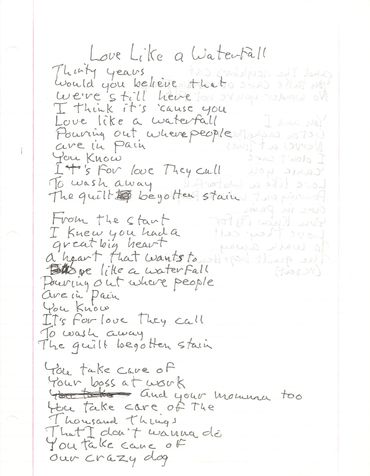 Love Like a Waterfall
Thirty years
would you believe that
we're still here
I think it's 'cause you
Love like a waterfall
Pouring out where people
are in pain
You know
It's for love They call
To wash away
The guilt begotten stain
From the start
I knew you had a
great big heart
a heart that wants to
love like a waterfall
Pouring out where people
are in pain
You know
It's for love they call
To wash away
The guilt begotten stain
You take care of
Your boss at work
You take And your momma too
You take care of the
Thousand things
That I don't wanna do
You take care of
our crazy dog